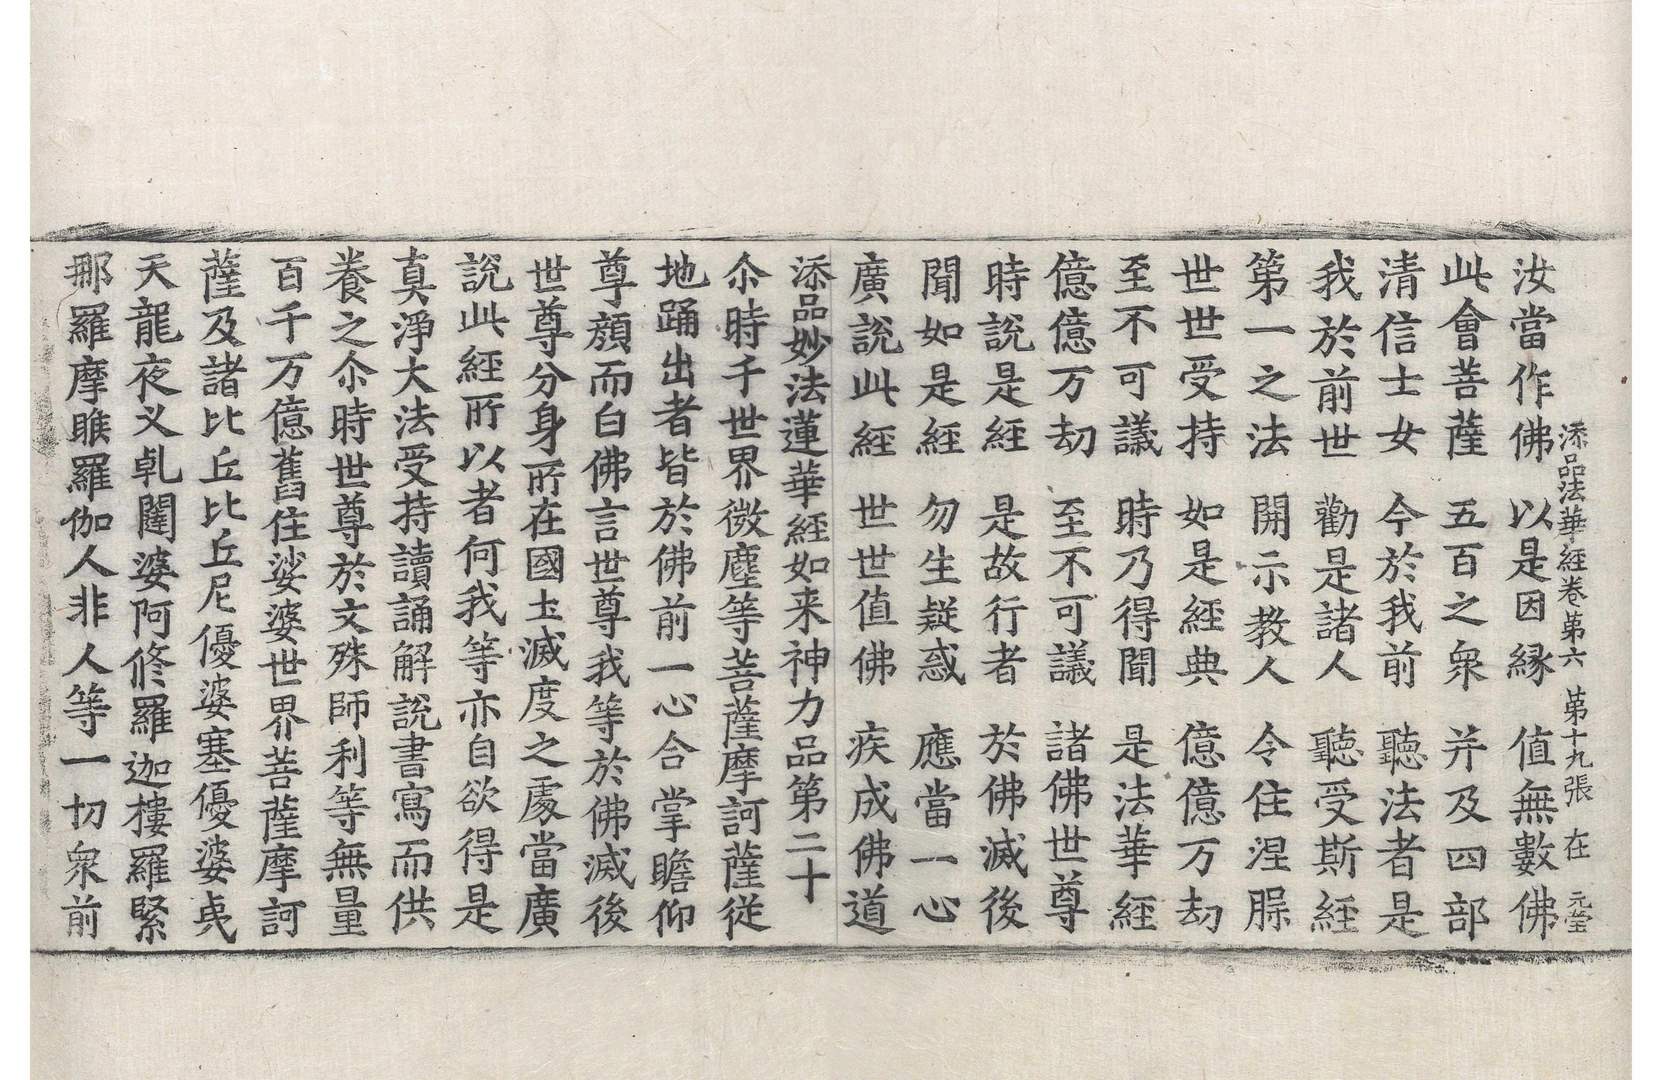 添品法華経卷第六　第十九張　在　元瑩
汝當作佛　以是因縁　值無數佛
此會菩薩　五百之衆　并及四部
清信士女　今於我前　聽法者是
我於前世　勸是諸人　聽受斯經
第一之法　開示教人　令住涅脲
世世受持　如是經典　億億万劫
至不可議　時乃得聞　是法華經
億億万劫　至不可議　諸佛世尊
時說是經　是故行者　於佛滅後
聞如是經　勿生疑惑　應當一心
廣說此經　世世值佛　疾成佛道
添品妙法蓮華經如来神力品第二十
尒時千世界微塵等菩薩摩訶薩從
地踊出者皆於佛前一心合掌瞻仰
尊顔而白佛言世尊我等於佛滅後
世尊分身所在國土滅度之處當廣
說此經所以者何我等亦自欲得是
真淨大法受持讀誦解說書寫而供
養之尒時世尊於文殊師利等無量
百千万億舊住娑婆世界菩薩摩訶
薩及諸比丘比丘尼優婆塞優婆夷
天龍夜叉乹闥婆阿修羅迦樓羅緊
那羅摩睺羅伽人非人等一切衆前